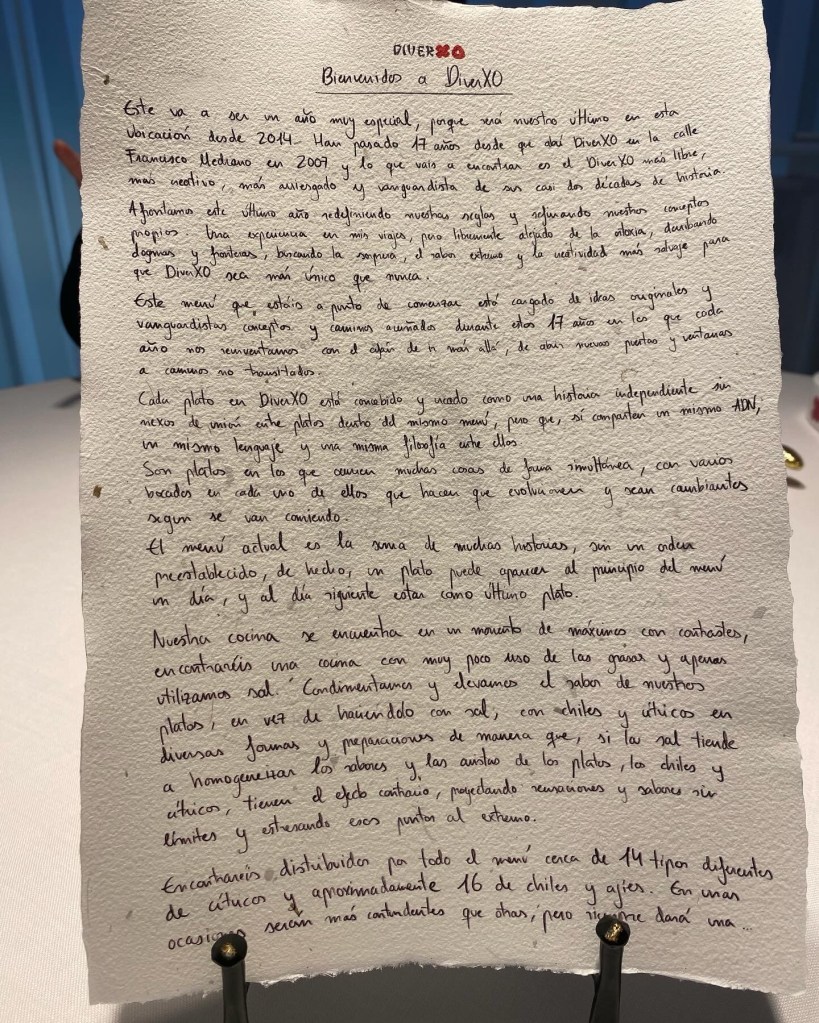 DIVERXO
Bienvenidos a DiverXO
Este va a ser un año muy especial, porque será nuestro último en esta
ubicación desde 2014. Han pasado 17 años desde que abrí DiverXO en la calle
Francisco Medrano en 2007 y lo que vais a encontrar es el DiverXO más libre,
más creativo, más arriesgado y vanguardista de sus casi dos décadas de historia.
Afrontamos este último año redefiniendo nuestras reglas y refinando nuestros conceptos
propios. Una experiencia en mis viajes, pero libremente alejado de la ortodoxia, derribando
dogmas y fronteras, buscando la sorpresa, el sabor extremo y la creatividad más salvaje para
que DiverXO sea más único que nunca.
Este menú que estáis a punto de comenzar está cargado de ideas originales y
vanguardistas conceptos y caminos acumulados durante estos 17 años en los que cada
año nos reinventamos con el afán de ir más allá, de abrir nuevas puertas y ventanas
a caminos no transitados.
Cada plato en DiverXO está concebido y creado como una historia independiente sin
nexos de unión entre platos dentro del mismo menú, pero que, sí comparten un mismo ADN,
un mismo lenguaje y una misma filosofía entre ellos.
Son platos en los que ocurren muchas cosas de forma simultánea, con varios
bocados en cada uno de ellos que hacen que evolucionen y sean cambiantes
según se van comiendo.
El menú actual es la suma de muchas historias, sin un orden
preestablecido, de hecho, un plato puede aparecer al principio del menú
un día, y al día siguiente estar como último plato.
Nuestra cocina se encuentra en un momento de máximos con contrastes,
encontraréis una cocina con muy poco uso de las grasas y apenas
utilizamos sal. Condimentamos y elevamos el sabor de nuestros
platos, en vez de hacerlo con sal, con chiles y cítricos en
diversas formas y preparaciones de manera que, si la sal tiende
a homogeneizar los sabores y las aristas de los platos, los chiles y
cítricos, tienen el efecto contrario, proyectando sensaciones y sabores sin
límites y estresando esos puntos al extremo.
Encontraréis distribuidos por todo el menú cerca de 14 tipos diferentes
de cítricos y aproximadamente 16 de chiles y ajíes. En unas
ocasiones serán más contundentes que otras, pero siempre dará una...